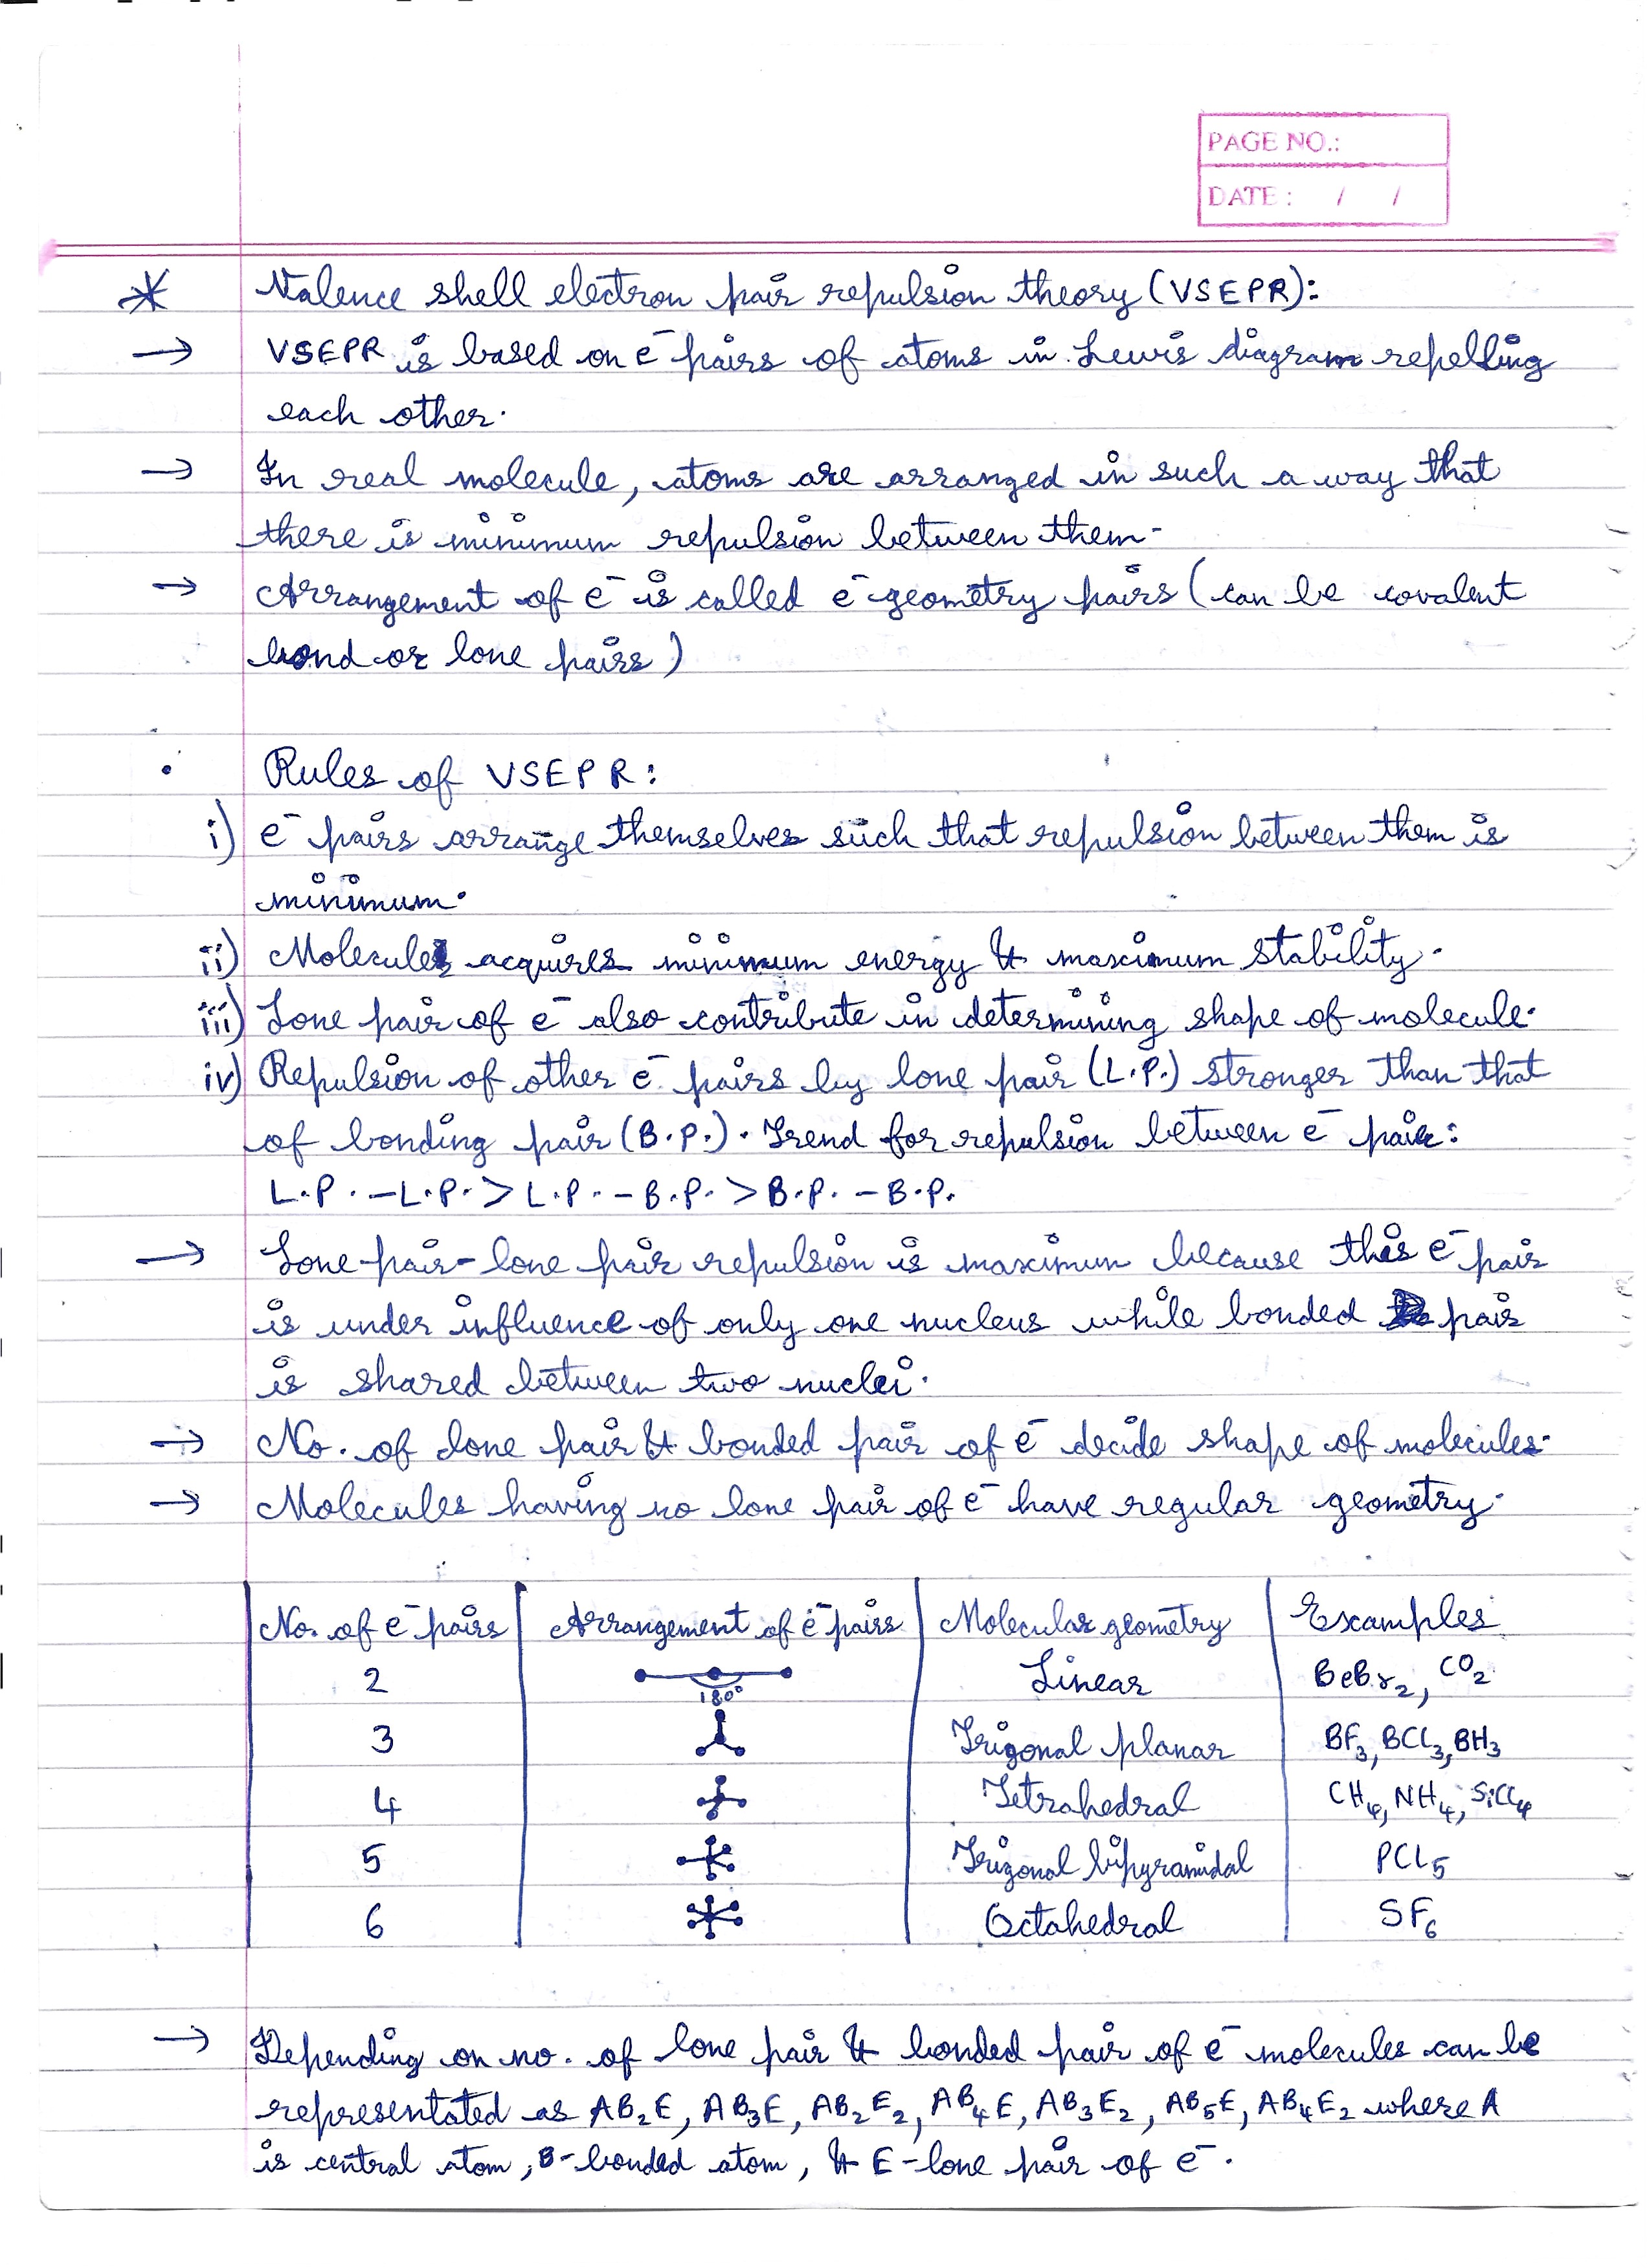 PAGE NO.:
DATE : / /
* Valence shell electron pair repulsion theory (VSEPR):
→ VSEPR is based on e⁻ pairs of atoms in Lewis diagram repelling
each other.
→ In real molecule, atoms are arranged in such a way that
there is minimum repulsion between them.
→ Arrangement of e⁻ is called e⁻ geometry pairs (can be covalent
bond or lone pairs)
• Rules of VSEPR:
i) e⁻ pairs arrange themselves such that repulsion between them is
minimum.
ii) Molecules acquires minimum energy & maximum stability.
iii) Lone pair of e⁻ also contribute in determining shape of molecule.
iv) Repulsion of other e⁻ pairs by lone pair (L.P.) stronger than that
of bonding pair (B.P.). Trend for repulsion between e⁻ pair:
L.P. - L.P. > L.P. - B.P. > B.P. - B.P.
→ Lone pair - lone pair repulsion is maximum because this e⁻ pair
is under influence of only one nucleus while bonded pair
is shared between two nuclei.
→ No. of lone pair & bonded pair of e⁻ decide shape of molecules.
→ Molecules having no lone pair of e⁻ have regular geometry.
No. of e⁻ pairs Arrangement of e⁻ pairs Molecular geometry Examples
2 180° Linear BeBr₂, CO₂
3 Trigonal planar BF₃, BCl₃, BH₃
4 Tetrahedral CH₄, NH₄, SiCl₄
5 Trigonal bipyramidal PCl₅
6 Octahedral SF₆
→ Depending on no. of lone pair & bonded pair of e⁻ molecules can be
representated as AB₂E, AB₃E, AB₂E₂, AB₄E, AB₃E₂, AB₅E, AB₄E₂ where A
is central atom, B-bonded atom, & E-lone pair of e⁻.